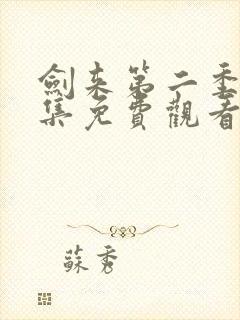 劍来第二季
集免費觀看
蘇秀